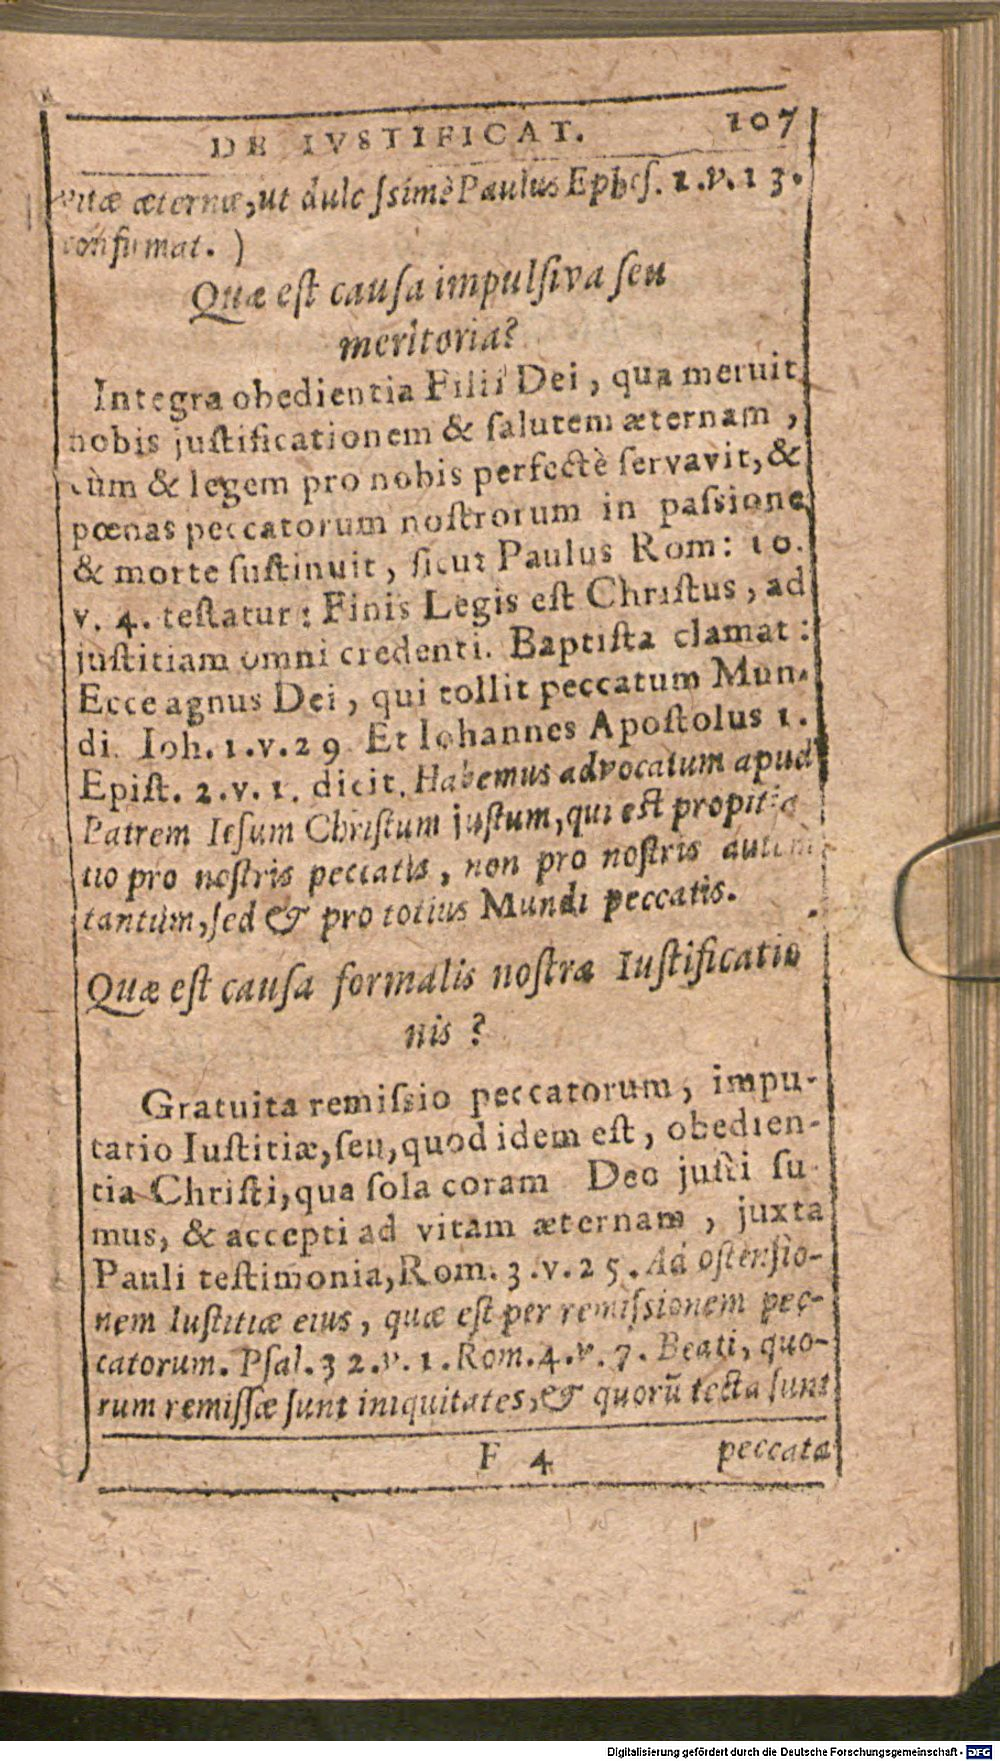 DE IVSTIFICAT. 107
vitæ æternæ, ut dulc ſsimè Paulus Epheſ. 1. v. 13.
confirmat. )
Quæ est cauſa impulſiva ſeu
meritoria?
Integra obedientia Filii Dei, qua meruit
nobis juſtificationem & ſalutem æternam,
cùm & legem pro nobis perfectè ſervavit, &
pœnas peccatorum noſtrorum in paſsione
& morte ſuſtinuit, ſicut Paulus Rom: 10.
v. 4. teſtatur: Finis Legis eſt Chriſtus, ad
juſtitiam omni credenti. Baptiſta clamat:
Ecce agnus Dei, qui tollit peccatum Mun-
di. Ioh. 1. v. 29 Et Iohannes Apoſtolus 1.
Epiſt. 2. v. 1. dicit. Habemus advocatum apud
Patrem Ieſum Chriſtum juſtum, qui eſt propitia
tio pro noſtris peccatis, non pro noſtris autem
tantùm, ſed & pro totius Mundi peccatis.
Quæ eſt cauſa formalis noſtræ Iuſtificatio
nis?
Gratuita remiſsio peccatorum, impu-
tatio Iuſtitiæ, ſeu, quod idem eſt, obedien-
tia Chriſti, qua ſola coram Deo juſti ſu-
mus, & accepti ad vitam æternam, juxta
Pauli teſtimonia, Rom. 3. v. 25. Ad oſtenſio-
nem Iuſtitiæ eius, quæ eſt per remiſsionem pec-
catorum. Pſal. 32. v. 1. Rom. 4. v. 7. Beati, quo-
rum remiſſæ ſunt iniquitates, & quorū tecta ſunt
F 4 peccata
Digitalisierung gefördert durch die Deutsche Forschungsgemeinschaft - DFG